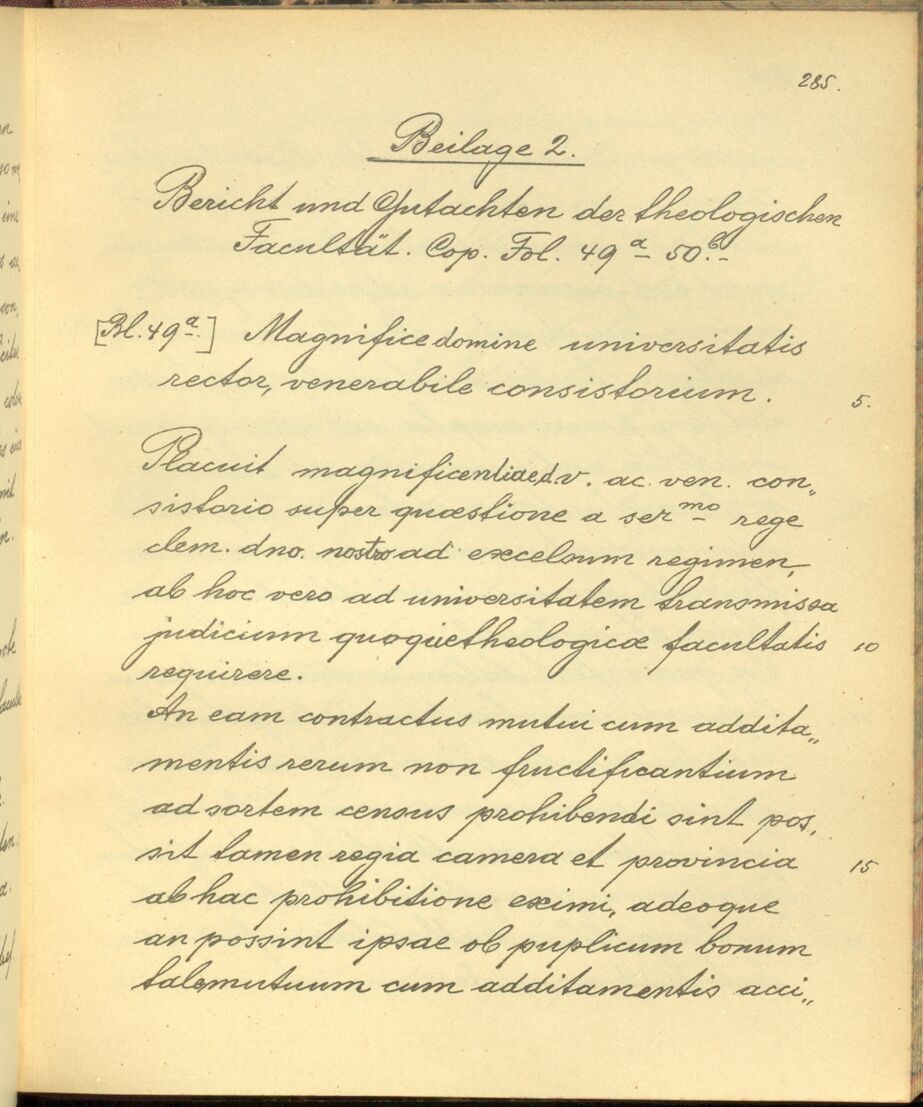 285.
Beilage 2.
Bericht und Gutachten der theologischen
Facultät. Cop. Fol. 49a – 50b. –
[Bl. 49a.] Magnifice domine universitatis
rector, venerabile consistorium.
5.
Placuit magnificentiae d. v. ac. ven. con„
sistorio super quæstione a sermo rege
clem. dno. nostro ad excelsum regimen,
ab hoc vero ad universitatem transmissa
judicium quoque theologicæ facultatis 10
requirere.
An eam contractus mutui cum addita„
mentis rerum non fructificantium
ad sortem census prohibendi sint pos„
sit tamen regia camera et provincia 15
ab hac prohibitione eximi, adeoque
an possint ipsae ob puplicum bonum
tale mutuum cum additamentis acci„